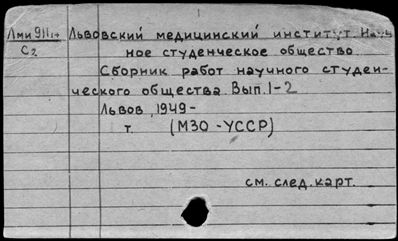 Лми 911 Львовский медицинский институт. Науч
С2 ное студенческое общество.
Сборник работ научного студен-
ческого общества. Вып. 1-2
Львов, 1949-
т. (МЗО - УССР)
см. след. карт.